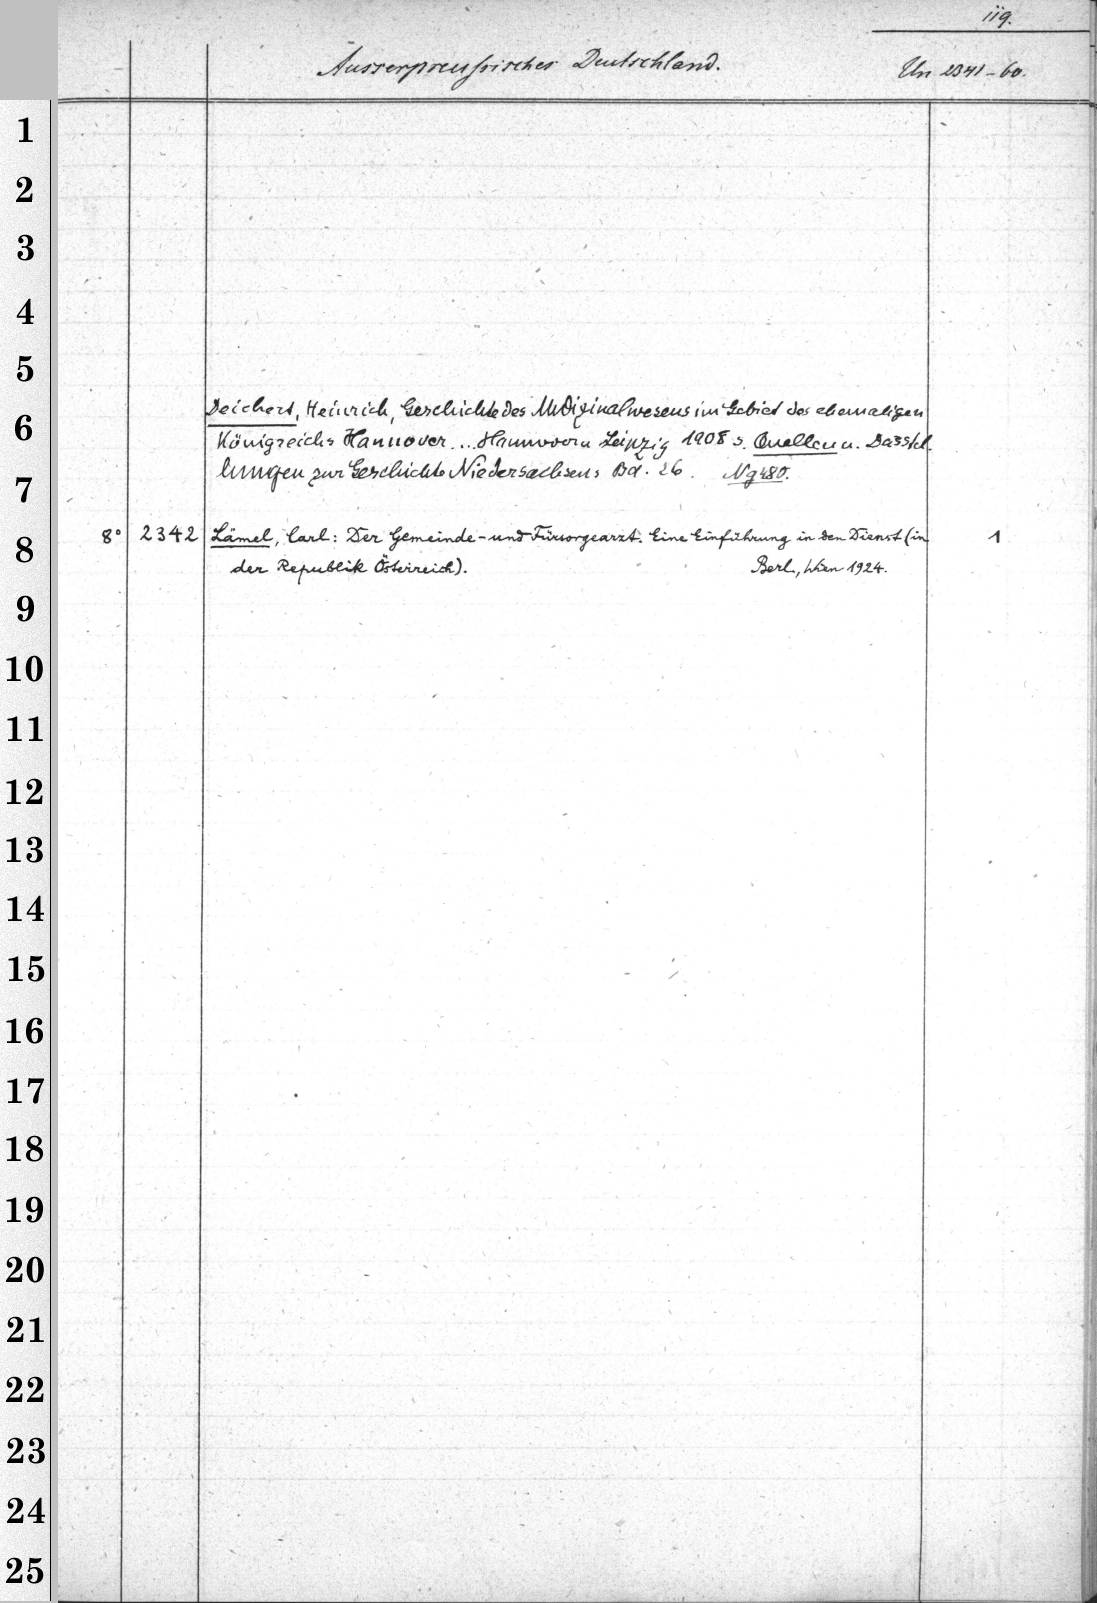 119.
Ausserpreussisches Deutschland.
Un 2341-60.
1
2
3
4
5
Deichert, Heinrich, Geschichte des Medizinalwesens im Gebiet des ehemaligen
6
Königreichs Hannover ... Hannover u Leipzig 1908 s. Quellen u. Darstel-
lungen zur Geschichte Niedersachsens Bd. 26. Ng 480.
7
8° 2342 Lämel, Carl: Der Gemeinde- und Fürsorgearzt. Eine Einführung in den Dienst (in 1
8
der Republik Österreich). Berl., Wien 1924.
9
10
11
12
13
14
15
16
17
18
19
20
21
22
23
24
25